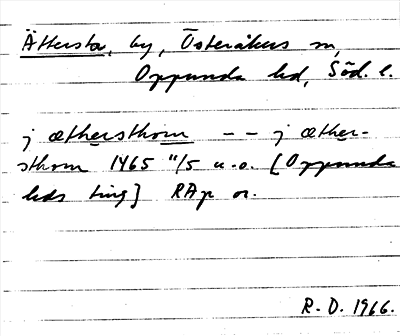 Ättersta, by, Österåkers sn,
Oppunda hd, Söd. l.
j æthersthom -- j æther-
sthom 1465 11/5 u.o. [Oppunda
hds ting] RAp or.
R. D. 1966.